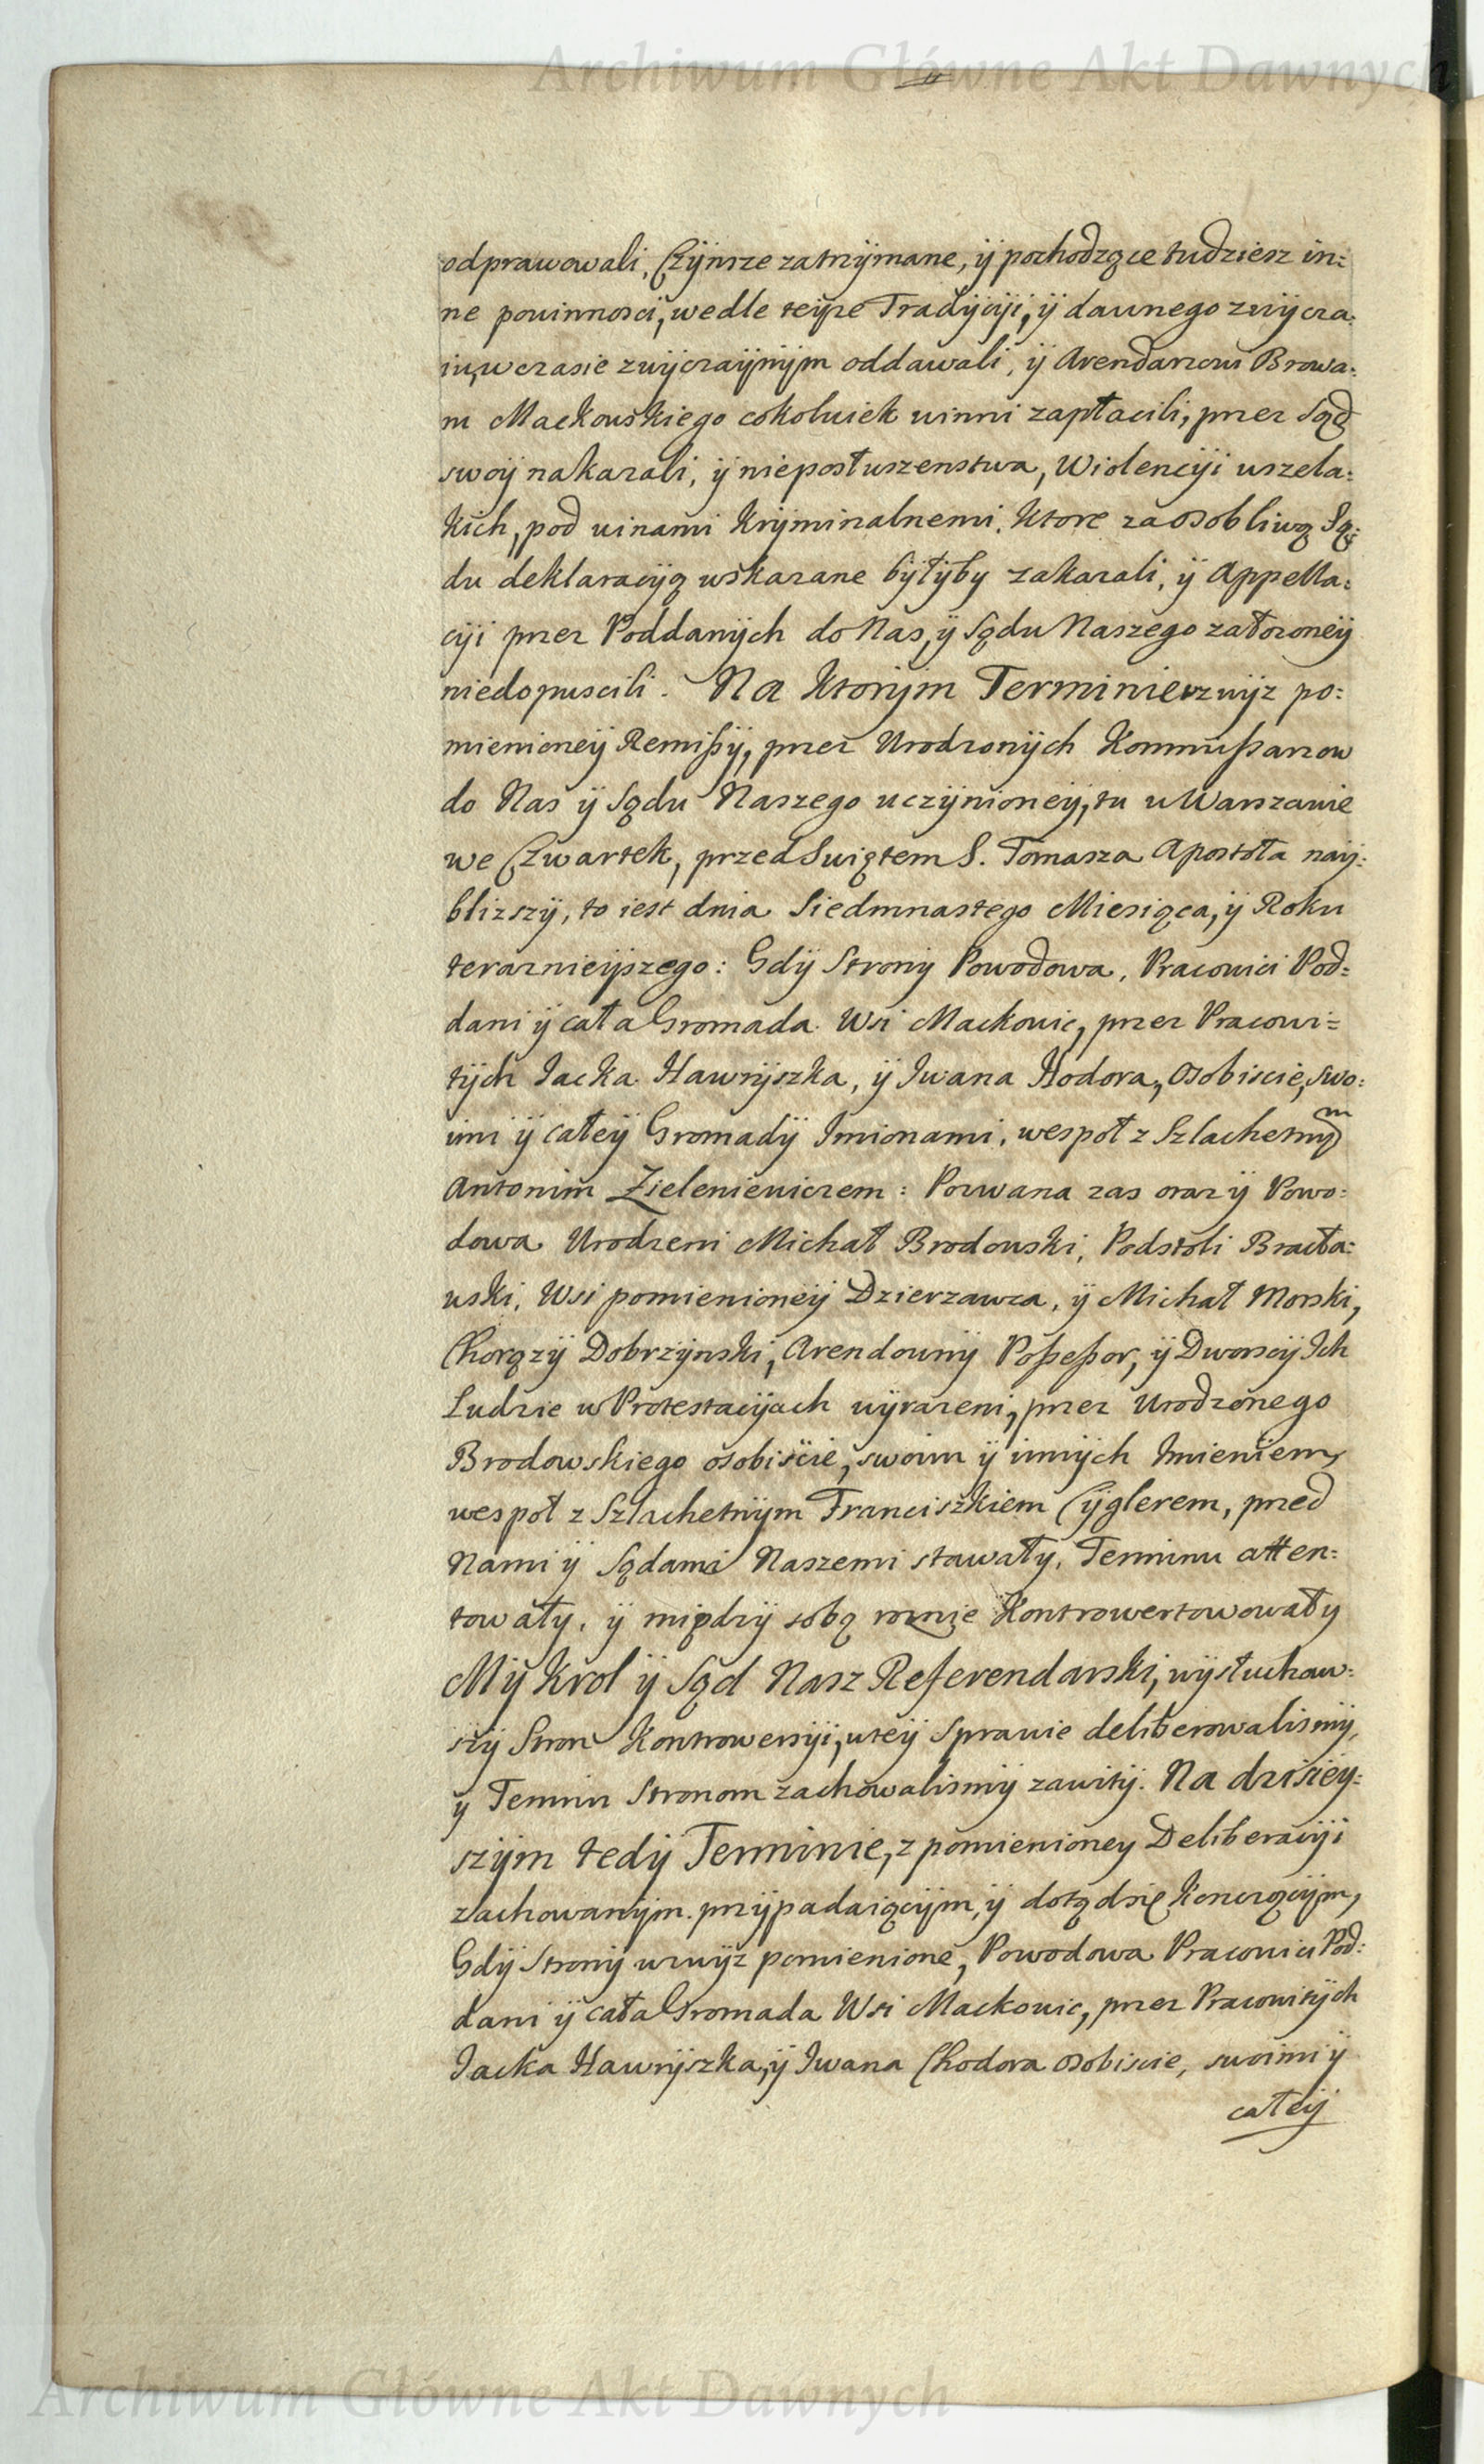 Archiwum Główne Akt Dawnych
odprawowali, Czÿnsze zatrzÿmane, ÿ pochodzące tudziesz in:
ne powinnosci, wedle teÿże Tradÿcÿi, ÿ dawnego zwÿcza:
iu, w czasie zwÿczaÿnÿm oddawali, ÿ Arendarzowi Browa:
ru Mackowskiego cokolwiek winni zapłacili, przez Sąd
swoÿ nakazali, ÿ nieposłuszenstwa, Wiolencÿi wszela:
kich, pod winami Krÿminalnemi, Ktore za osobliwą Są:
du deklaracÿą wskazane bÿłÿby zakazali, ÿ Appella:
cÿi przez Poddanÿch do Nas, ÿ Sądu Naszego założoneÿ
niedopuscili. Na Ktorÿm Terminie zwÿz po:
mienioneÿ Remißÿ, przez Urodzonÿch Kommißarzow
do Nas ÿ Sądu Naszego uczÿnioneÿ, tu w Warszawie
we Czwartek, przed Swiętem S. Tomasza Apostoła naÿ:
blizszÿ, to iest dnia Siedmnastego Miesiąca, ÿ Roku
teraznieÿszego: Gdÿ Stronÿ Powodowa, Pracowici Pod:
dani ÿ cała Gromada Wsi Mackowic, przez Pracowi=
tÿch Jacka Hawrÿszka, ÿ Jwana Hodora, osobiscie, swo:
imi ÿ całeÿ Gromadÿ Jmionami, wespoł z Szlachetnÿm
Antonim Zieleniewiczem: Pozwana zas oraz ÿ Powo:
dowa Urodzeni Michał Brodowski, Podstoli Bracła:
wski, Wsi pomienioneÿ Dzierzawca, ÿ Michał Morski,
Chorązÿ Dobrzÿnski, Arendownÿ Poßeßor, ÿ Dworscÿ Jch
Ludzie w Protestacÿach wÿrazeni, przez Urodzonego
Brodowskiego osobiscie, swoim ÿ innÿch Jmieniem,
wespoł z Szlachetnÿm Franciszkiem Cÿglerem, przed
Nami ÿ Sądami Naszemi stawały, Terminu atten:
towały, ÿ międzÿ sobą roznie Kontrowertowowały
Mÿ Krol ÿ Sąd Nasz Referendarski, wÿsłuchaw:
szÿ Stron Kontrowersÿi, w teÿ Sprawie deliberowalismÿ,
ÿ Termin Stronom zachowalismÿ zawitÿ. Na dzisieÿ:
szÿm tedÿ Terminie, z pomienioney Deliberacÿi
zachowanÿm przÿpadaiącÿm, ÿ dotąd się Konczącÿm,
Gdÿ Stronÿ wzwÿz pomienione, Powodowa Pracowici Pod:
dani ÿ cała Gromada Wsi Mackowic, przez Pracowitÿch
Jacka Hawrÿszka, ÿ Jwana Chodora osobiscie, swoimi ÿ
całeÿ
Archiwum Główne Akt Dawnych